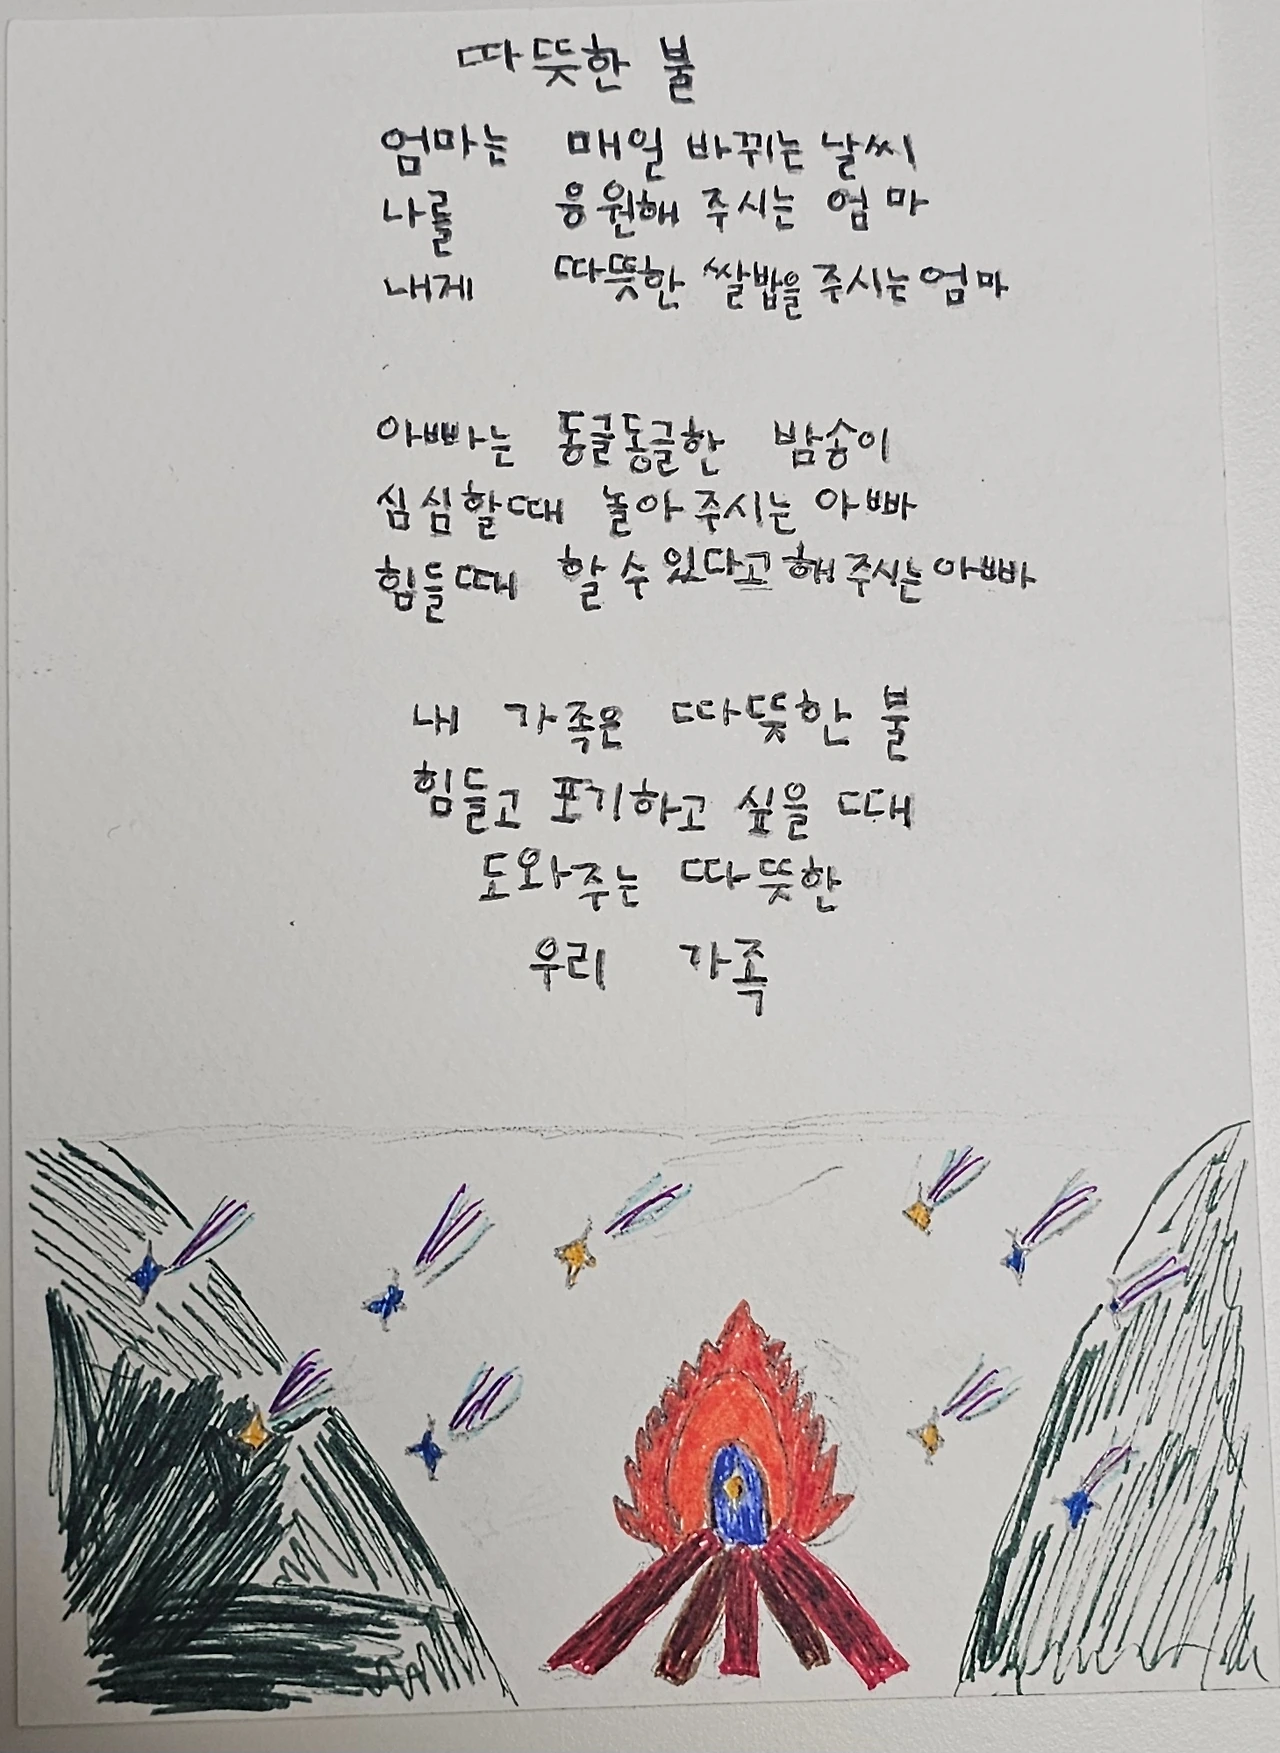 따뜻한 불
엄마는 매일 바뀌는 날씨
나를 응원해 주시는 엄마
내게 따뜻한 쌀밥을 주시는 엄마
아빠는 동글동글한 밤송이
심심할때 놀아 주시는 아빠
힘들때 할 수 있다고 해 주시는 아빠
내 가족은 따뜻한 불
힘들고 포기하고 싶을 때
도와주는 따뜻한
우리 가족